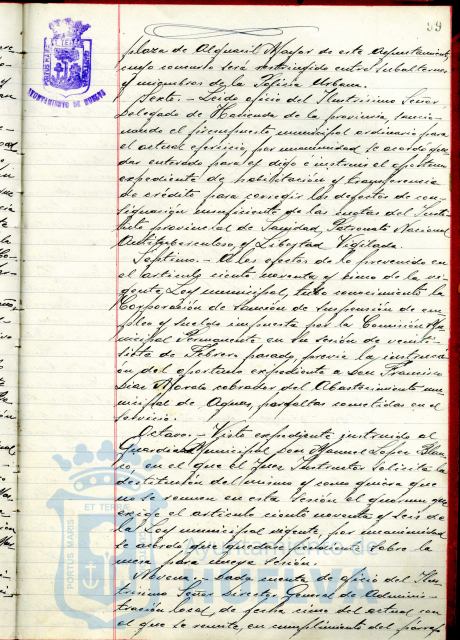 99
plaza de Alguacil Mayor de este Ayuntamiento,
cuyo concurso será restringido entre subalternos
y miembros de la Policia Urbana.
Sexto.- Leido oficio del Ilustrisimo Señor
Delegado de Hacienda de la provincia, sancio-
nando el presupuesto municipal ordinario para
el actual ejercicio, por unanimidad se acordó que-
dar enterado para ey digo é instruir el oportuno
expediente de habilitación y transferencia
de crédito para corregir los defectos de con-
signación insuficiente de las cuotas del Insti-
tuto provincial de Sanidad, Patronato Nacional
Antituberculoso, y Libertad Vigilada.
Séptimo.- A los efectos de lo prevenido en
el articulo ciento noventa y cinco de la vi-
gente Ley municipal, tuvo conocimiento la
Corporación de sanción de suspensión de em-
pleo y sueldo impuesta por la Comisión Mu-
nicipal Permanente en su sesión de veinti-
siete de Febrero pasado, previa la instrucci-
ón del oportuno expediente a Don Francisco
Diaz cobrador del Abastecimiento mu-
nicipal de Aguas, por faltas cometidas en el
servicio.
Octavo.- Visto expediente instruido al
Guardia Municipal Don Manuel Lopez Blan-
co, en el que el Juez Instructor solicita la
destitución del mismo y como quiera que
no se reunen en esta sesión el quorum que
exige el articulo ciento noventa y seis de
la Ley municipal vigente por unanimidad
se acordó que quede el expediente sobre la
mesa para nueva sesión.
Noveno.- Dada cuenta de oficio del Ilus-
trisimo Señor Director General de Adminis-
tración local, de fecha cinco del actual con
el que se remite, en cumplimiento del párrafo
AYUNTAMIENTO DE HUELVA
PORTUS MARIS ET TERRÆ
Ayuntamiento de
HUELVA